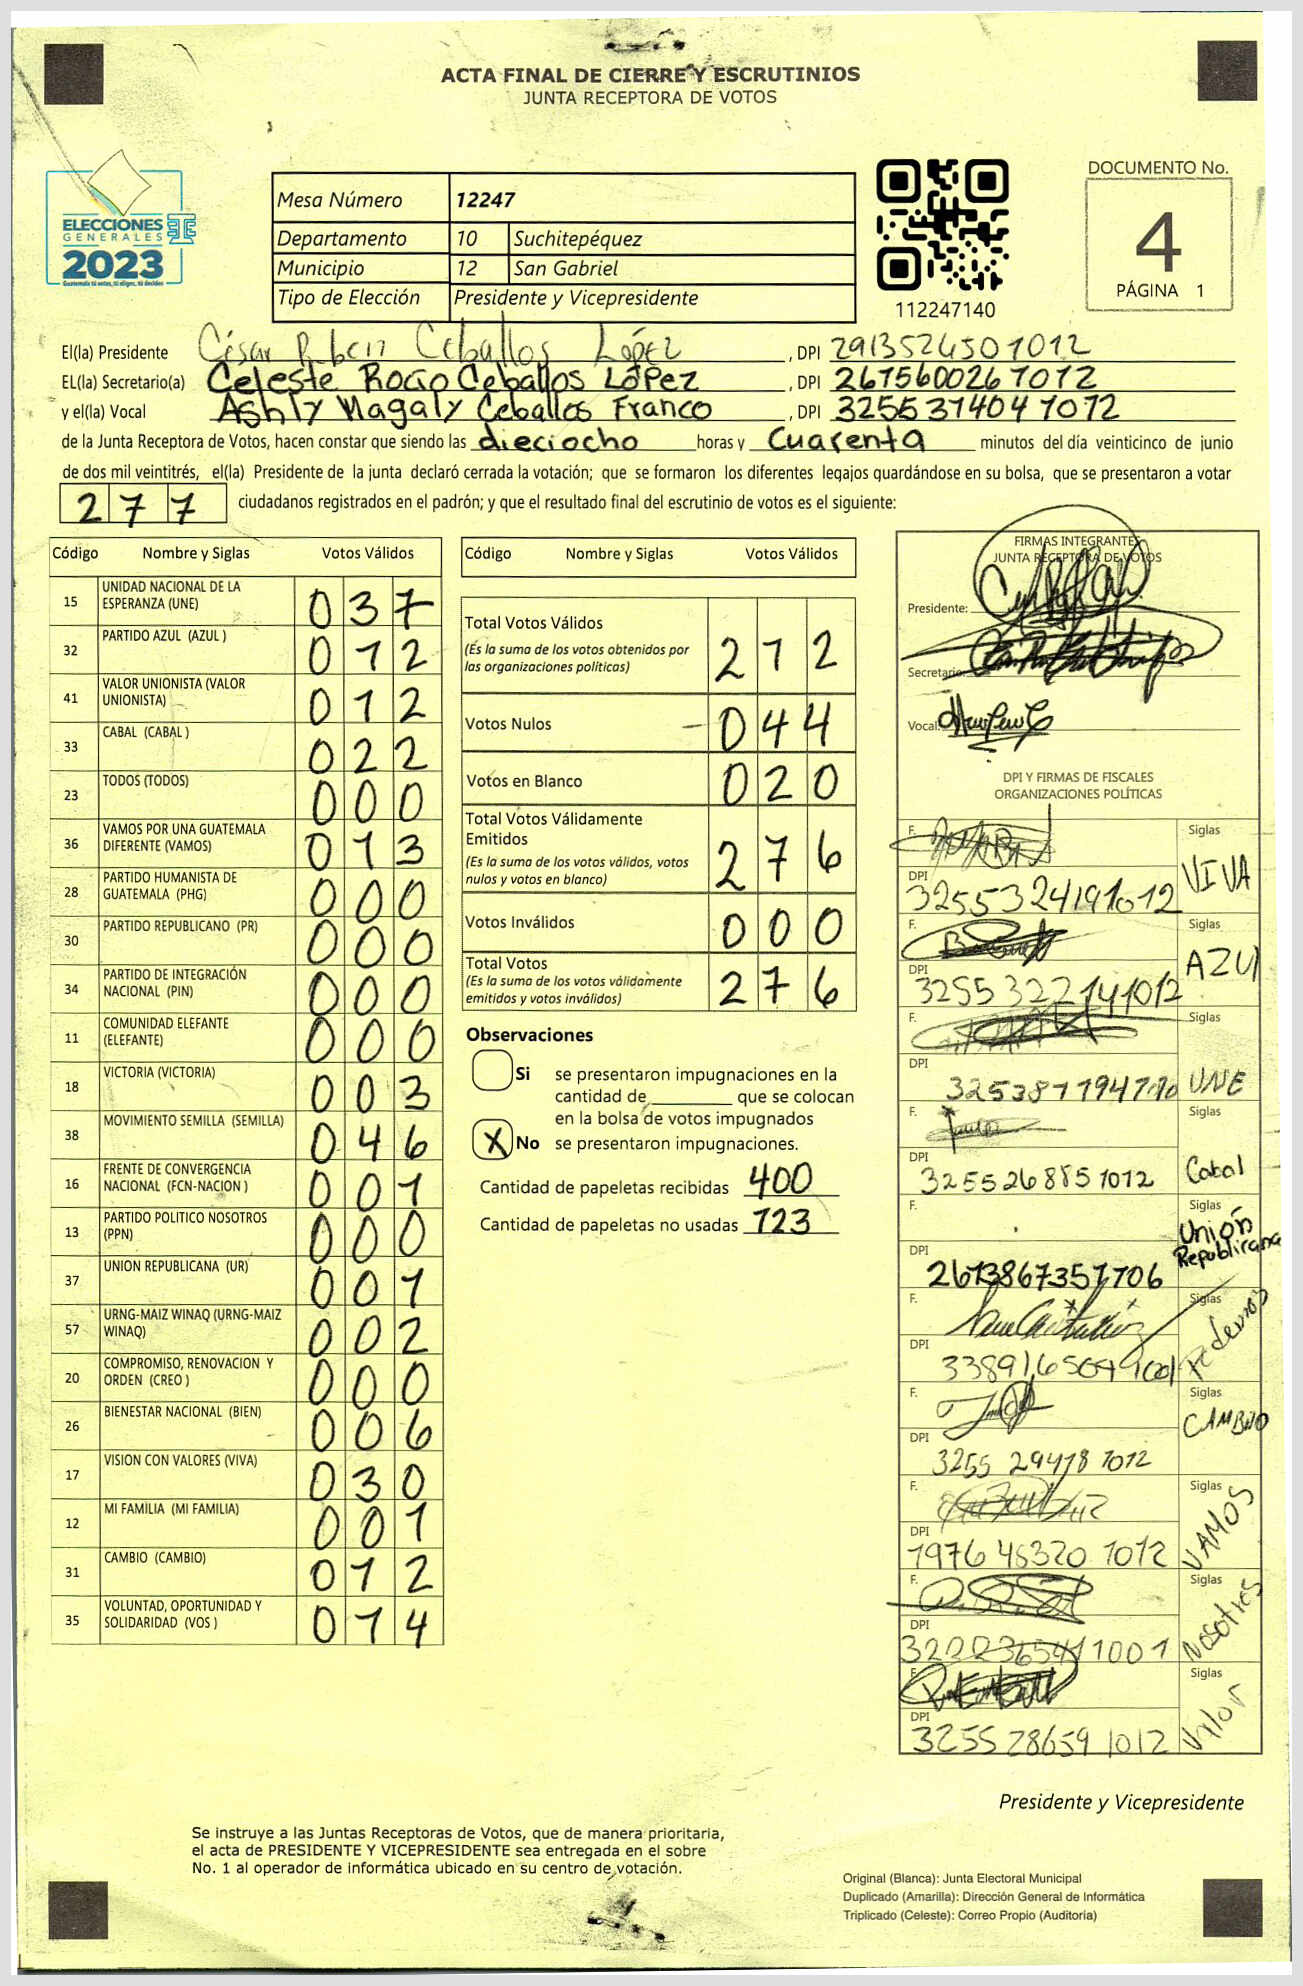 ACTA FINAL DE CIERRE Y ESCRUTINIOS
JUNTA RECEPTORA DE VOTOS
ELECCIONES
GENERALES
2023
Guatemala tú votas, tú eliges, tú decides
Mesa Número 12247
Departamento 10 Suchitepéquez
Municipio 12 San Gabriel
Tipo de Elección Presidente y Vicepresidente
112247140
DOCUMENTO No.
4
PÁGINA 1
El(la) Presidente César Ruben Ceballos López, DPI 2913524501012
EL(la) Secretario(a) Celeste Rocío Ceballos López, DPI 2675600261012
y el(la) Vocal Ashly Magaly Ceballos Franco, DPI 3255314041012
de la Junta Receptora de Votos, hacen constar que siendo las dieciocho horas y Cuarenta minutos del día veinticinco de junio
de dos mil veintitrés, el(la) Presidente de la junta declaró cerrada la votación; que se formaron los diferentes legajos guardándose en su bolsa, que se presentaron a votar
277 ciudadanos registrados en el padrón; y que el resultado final del escrutinio de votos es el siguiente:
Código Nombre y Siglas Votos Válidos
15 UNIDAD NACIONAL DE LA ESPERANZA (UNE) 037
32 PARTIDO AZUL (AZUL ) 012
41 VALOR UNIONISTA (VALOR UNIONISTA) 012
33 CABAL (CABAL ) 022
23 TODOS (TODOS) 000
36 VAMOS POR UNA GUATEMALA DIFERENTE (VAMOS) 013
28 PARTIDO HUMANISTA DE GUATEMALA (PHG) 000
30 PARTIDO REPUBLICANO (PR) 000
34 PARTIDO DE INTEGRACIÓN NACIONAL (PIN) 000
11 COMUNIDAD ELEFANTE (ELEFANTE) 000
18 VICTORIA (VICTORIA) 003
38 MOVIMIENTO SEMILLA (SEMILLA) 046
16 FRENTE DE CONVERGENCIA NACIONAL (FCN-NACION ) 001
13 PARTIDO POLITICO NOSOTROS (PPN) 000
37 UNION REPUBLICANA (UR) 001
57 URNG-MAIZ WINAQ (URNG-MAIZ WINAQ) 002
20 COMPROMISO, RENOVACION Y ORDEN (CREO ) 000
26 BIENESTAR NACIONAL (BIEN) 006
17 VISION CON VALORES (VIVA) 030
12 MI FAMILIA (MI FAMILIA) 001
31 CAMBIO (CAMBIO) 012
35 VOLUNTAD, OPORTUNIDAD Y SOLIDARIDAD (VOS ) 014
Código Nombre y Siglas Votos Válidos
Total Votos Válidos 212
(Es la suma de los votos obtenidos por
las organizaciones políticas)
Votos Nulos 044
Votos en Blanco 020
Total Votos Válidamente
Emitidos 276
(Es la suma de los votos válidos, votos
nulos y votos en blanco)
Votos Inválidos 000
Total Votos 276
(Es la suma de los votos válidamente
emitidos y votos inválidos)
Observaciones
Si se presentaron impugnaciones en la
cantidad de ________ que se colocan
en la bolsa de votos impugnados
X No se presentaron impugnaciones.
Cantidad de papeletas recibidas 400
Cantidad de papeletas no usadas 123
FIRMAS INTEGRANTES
JUNTA RECEPTORA DE VOTOS
Presidente:
Secretario:
Vocal:
DPI Y FIRMAS DE FISCALES
ORGANIZACIONES POLÍTICAS
F. Siglas VIVA
DPI 3255324191012
F. Siglas AZUL
DPI 3255322141012
F. Siglas UNE
DPI
F. Siglas Cabal
DPI 3255268851012
F. Siglas Unión Republicana
DPI 2613867351706
F. Siglas Podemos
DPI
F. Siglas CAMBIO
DPI 3255 29478 1012
F. Siglas VAMOS
DPI 1976 45320 1012
F. Siglas Nosotros
DPI
F. Siglas Valor
DPI 3255 28659 1012
Presidente y Vicepresidente
Se instruye a las Juntas Receptoras de Votos, que de manera prioritaria,
el acta de PRESIDENTE Y VICEPRESIDENTE sea entregada en el sobre
No. 1 al operador de informática ubicado en su centro de votación.
Original (Blanca): Junta Electoral Municipal
Duplicado (Amarilla): Dirección General de Informática
Triplicado (Celeste): Correo Propio (Auditoria)